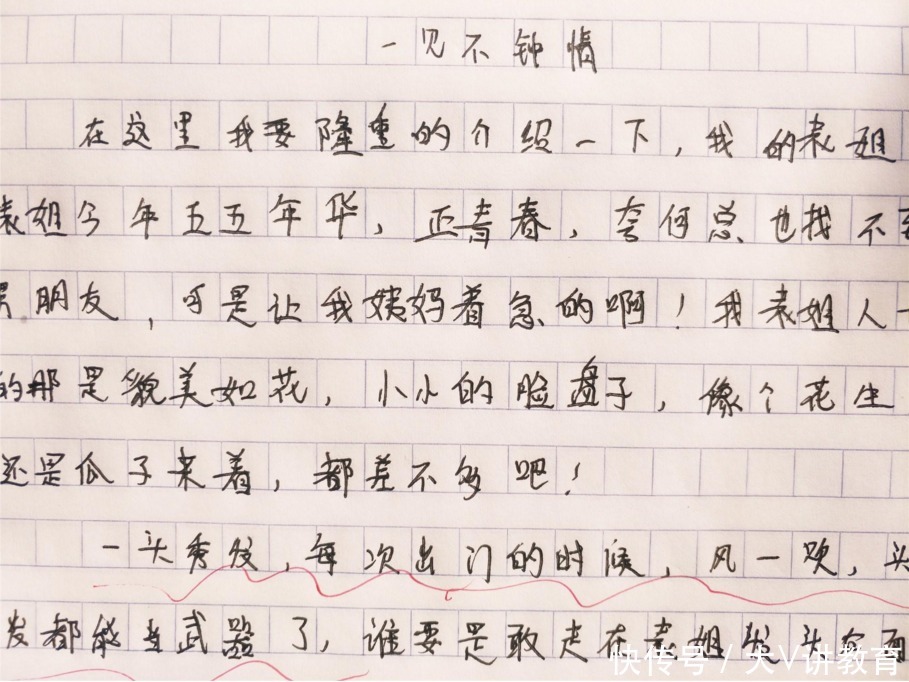 一见不钟情
在这里我要隆重的介绍一下，我的表姐
表姐今年五五年华，正青春，夸何总也找不到
男朋友，可是让我姨妈着急的啊！我表姐人一
的那是貌美如花，小小的脸盘子，像个花生
还是瓜子来着，都差不多吧！
一头秀发，每次出门的时候，风一吹，头
发都能当武器了，谁要是敢走在表姐
快传号 / 大V讲教育